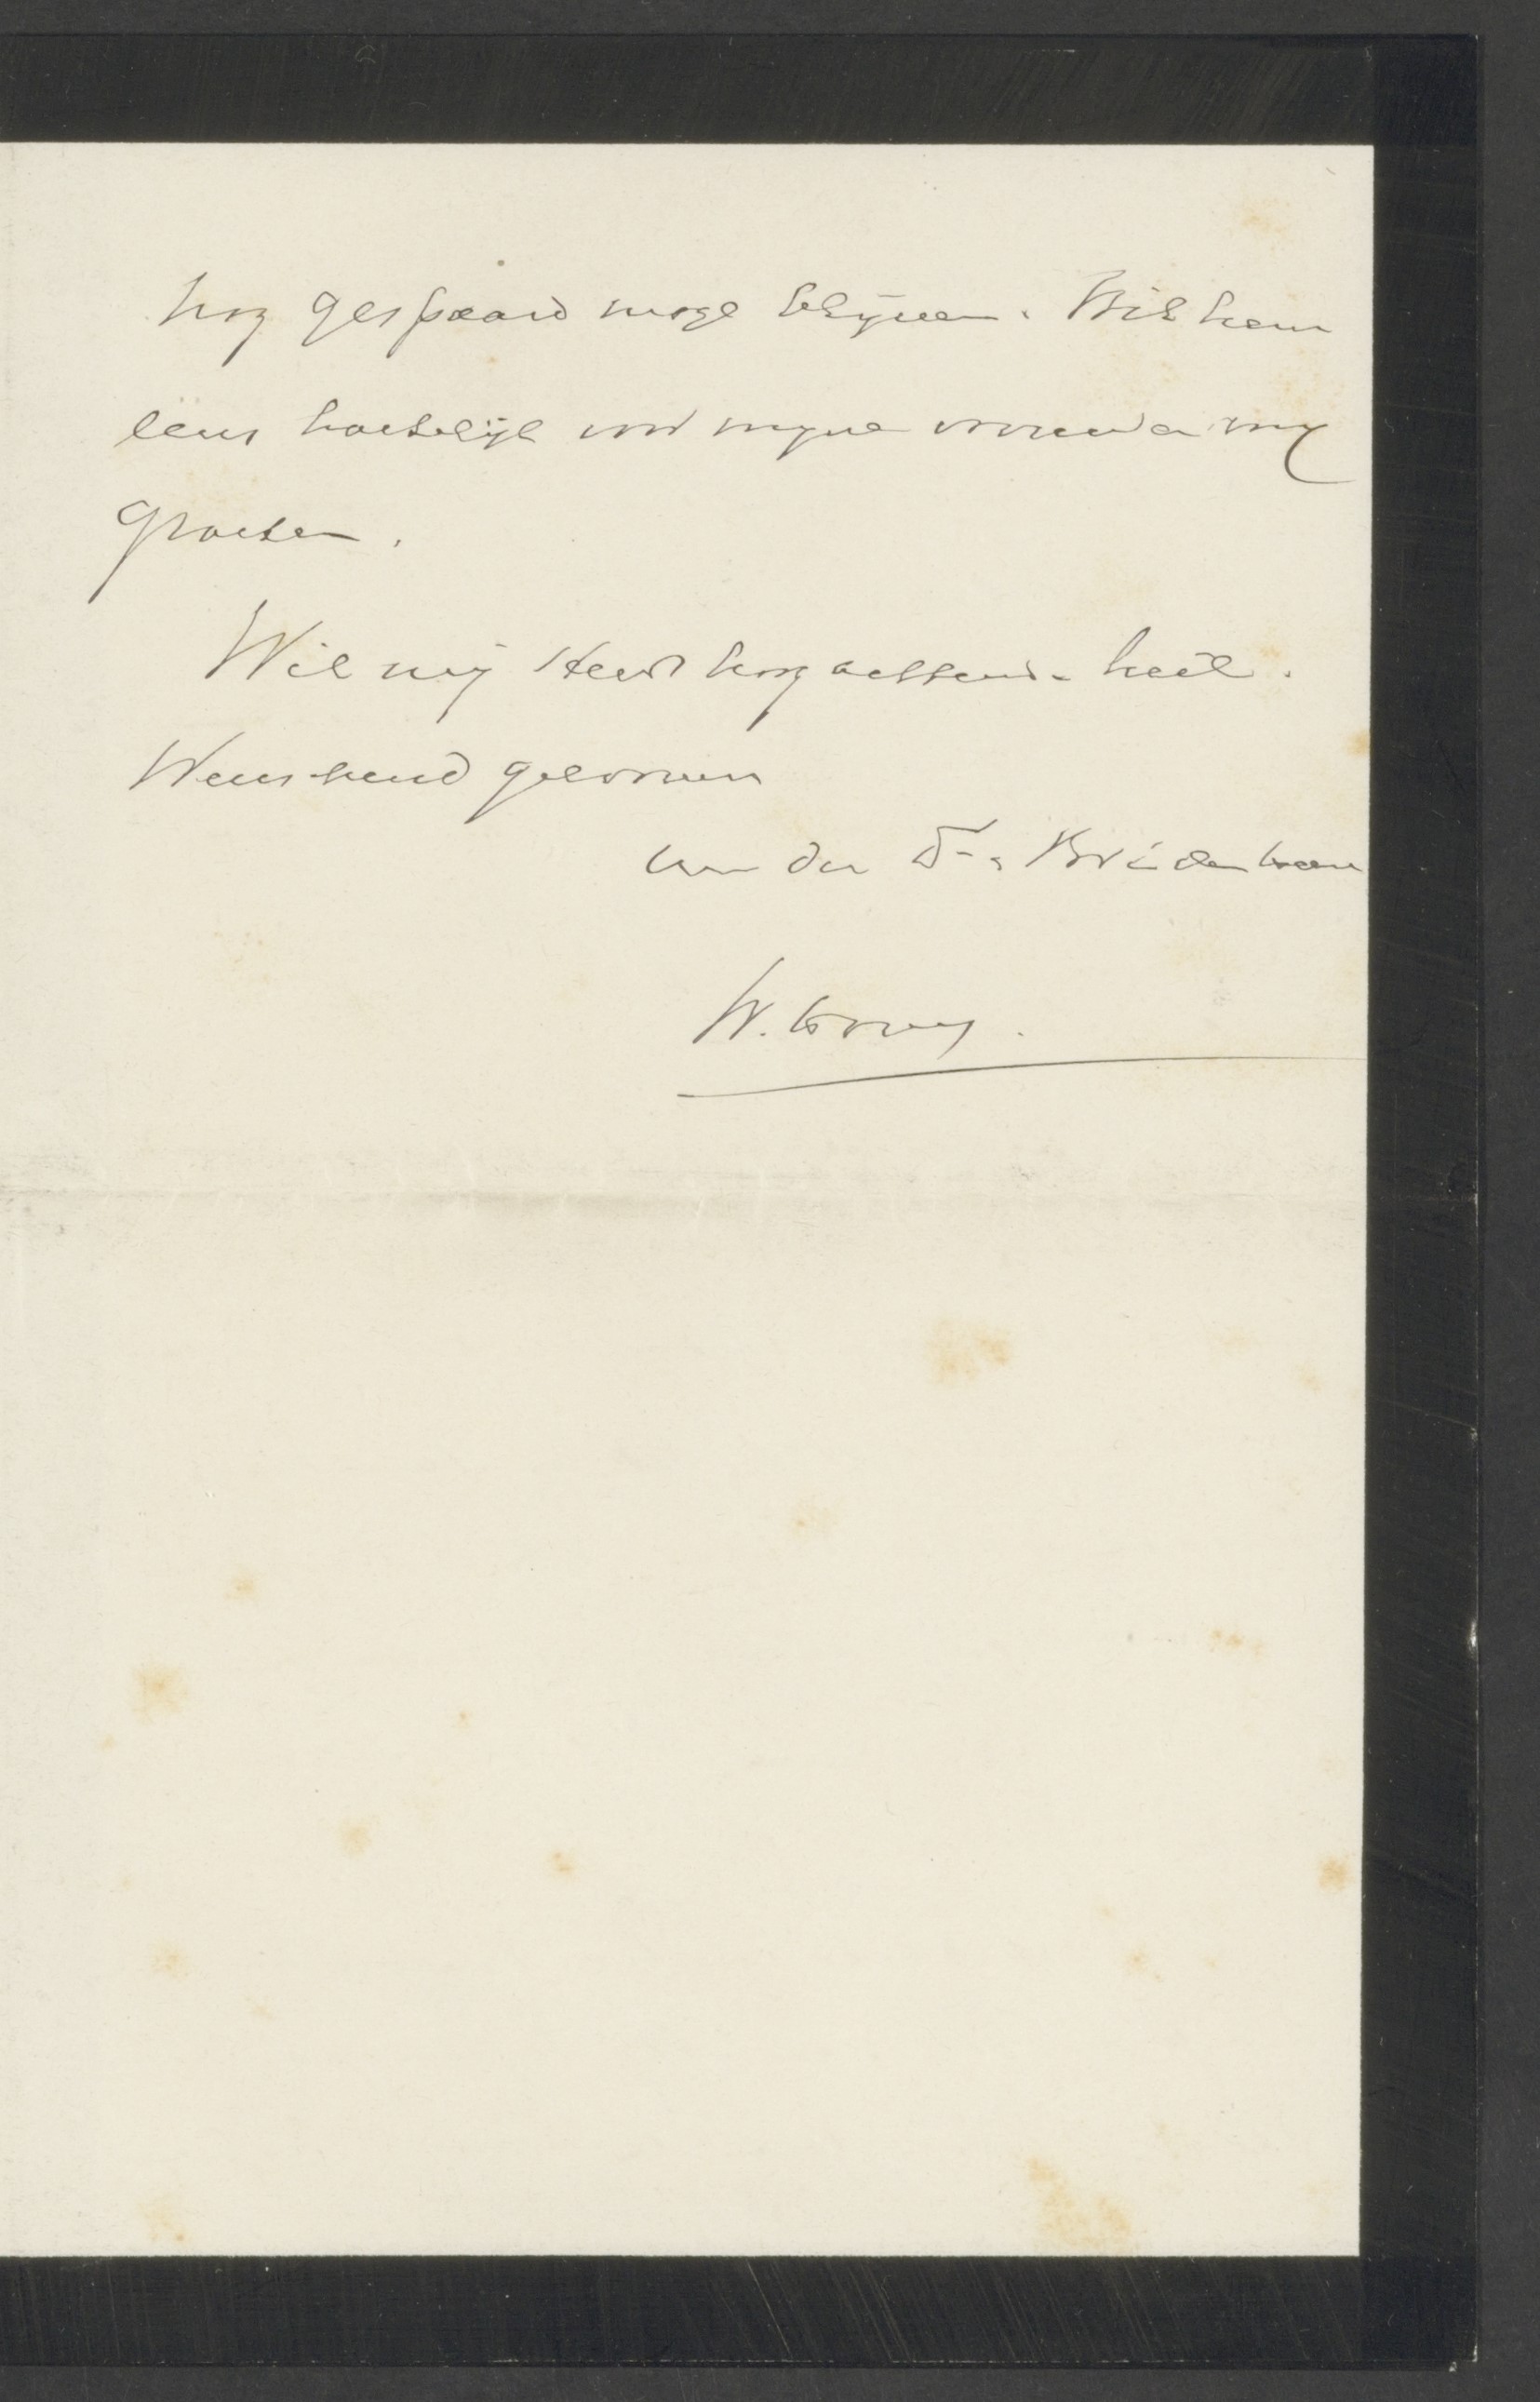 nog gespaard moge blijven. Wil hem
eens hartelijk van mijne vrouw en mij
groeten.
Wil mij steeds hoogachtend en heil
wenschend gelooven
Uw dw Dr. Broeder
W.